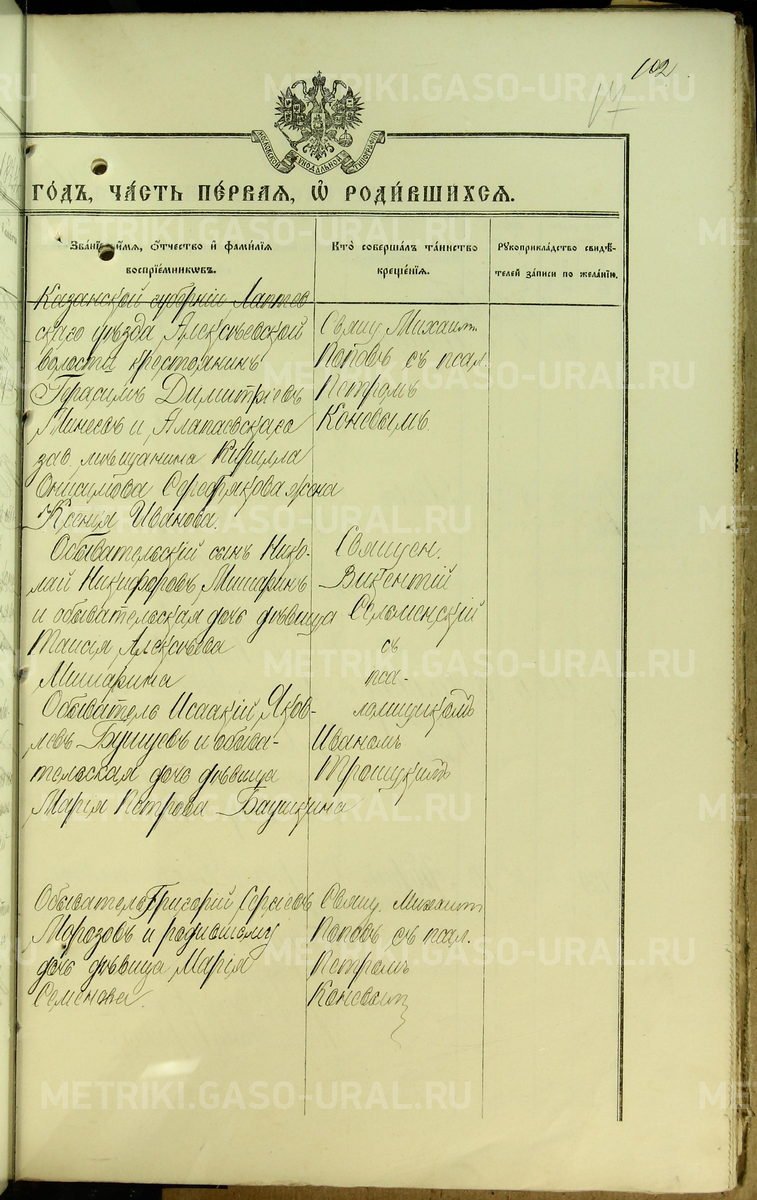 102
17
МОСКОВСКОЙ СУНОДАЛЬНОЙ ТИПОГРАФІИ
ГО́ДЪ, ЧА́СТЬ ПЕ́РВАЯ, Ѡ҆ РОДИ́ВШИХСЯ.
Зва́нїе, и҆́мя, ѻ҆́тчество и҆ фамилїя
воспрїе́мникѡвъ.
Кто̀ соверша́лъ та́инство
креще́нїя.
Рꙋкоприкладство свидѣ́-
телей за́писи по жела́нїю.
Казанской губерніи Лаишев
скаго уѣзда Алексѣевской
волости крестьянинъ
Герасимъ Димитріевъ
Минеевъ и Алапаевскаго
зав. мѣщанина Кирилла
Онисимова Серебрякова жена
Ксенія Иванова.
Свящ. Михаилъ
Поповъ съ псал.
Петромъ
Коневымъ
Обывательскій сынъ Нико-
лай Никифоровъ Мишаринъ
и обывательская дочь дѣвица
Таисія Алексѣева
Мишарина
Священ.
Викентій
Сельменскій
съ
пса-
ломщикомъ
Иваномъ
Троицкимъ
Обыватель Исаакій Яков-
левъ Бушуевъ и обыва-
тельская дочь дѣвица
Марія Петрова Баушкина
Обыватель Григорій Сергѣевъ
Морозовъ и родившему
дочь дѣвица Марія
Семенова.
Свящ. Михаилъ
Поповъ съ псал.
Петромъ
Коневым
METRIKI.GASO-URAL.RU